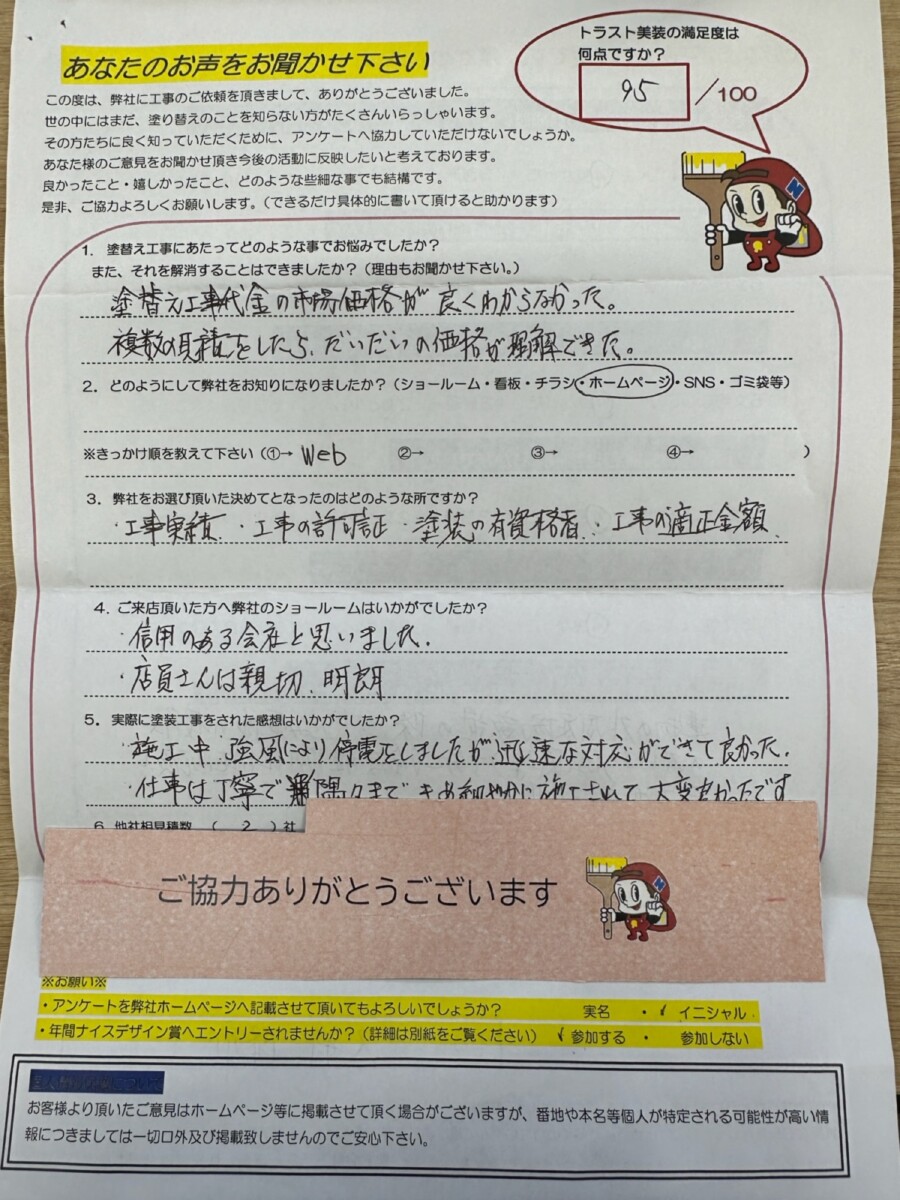 あなたのお声をお聞かせ下さい
トラスト美装の満足度は
何点ですか？
95 /100
この度は、弊社に工事のご依頼を頂きまして、ありがとうございました。
世の中にはまだ、塗り替えのことを知らない方がたくさんいらっしゃいます。
その方たちに良く知っていただくために、アンケートへ協力していただけないでしょうか。
あなた様のご意見をお聞かせ頂き今後の活動に反映したいと考えております。
良かったこと・嬉しかったこと、どのような些細な事でも結構です。
是非、ご協力よろしくお願いします。（できるだけ具体的に書いて頂けると助かります）
N
1．塗替え工事にあたってどのような事でお悩みでしたか？
また、それを解消することはできましたか？（理由もお聞かせ下さい。）
塗替え工事代金の市場価格が良くわからなかった。
複数の見積をしたら、だいだいの価格が理解できた。
2．どのようにして弊社をお知りになりましたか？（ショールーム・看板・チラシ・ホームページ・SNS・ゴミ袋等）
※きっかけ順を教えて下さい（①→ Web ②→ ③→ ④→ ）
3．弊社をお選び頂いた決めてとなったのはどのような所ですか？
・工事実績 ・工事の許可証 ・塗装の有資格者 ・工事の適正金額
4．ご来店頂いた方へ弊社のショールームはいかがでしたか？
・信用のある会社と思いました。
・店員さんは親切、明朗
5．実際に塗装工事をされた感想はいかがでしたか？
・施工中、強風により停電をしましたが迅速な対応ができて良かった。
・仕事は丁寧で隅々まできめ細やかに施工されて大変良かったです
6．他社相見積数 （ 2 ）社
ご協力ありがとうございます
N
※お願い※
・アンケートを弊社ホームページへ記載させて頂いてもよろしいでしょうか？ 実名 ・ ✓ イニシャル
・年間ナイスデザイン賞へエントリーされませんか？（詳細は別紙をご覧ください） ✓ 参加する ・ 参加しない
お客様より頂いたご意見はホームページ等に掲載させて頂く場合がございますが、番地や本名等個人が特定される可能性が高い情
報につきましては一切口外及び掲載致しませんのでご安心下さい。